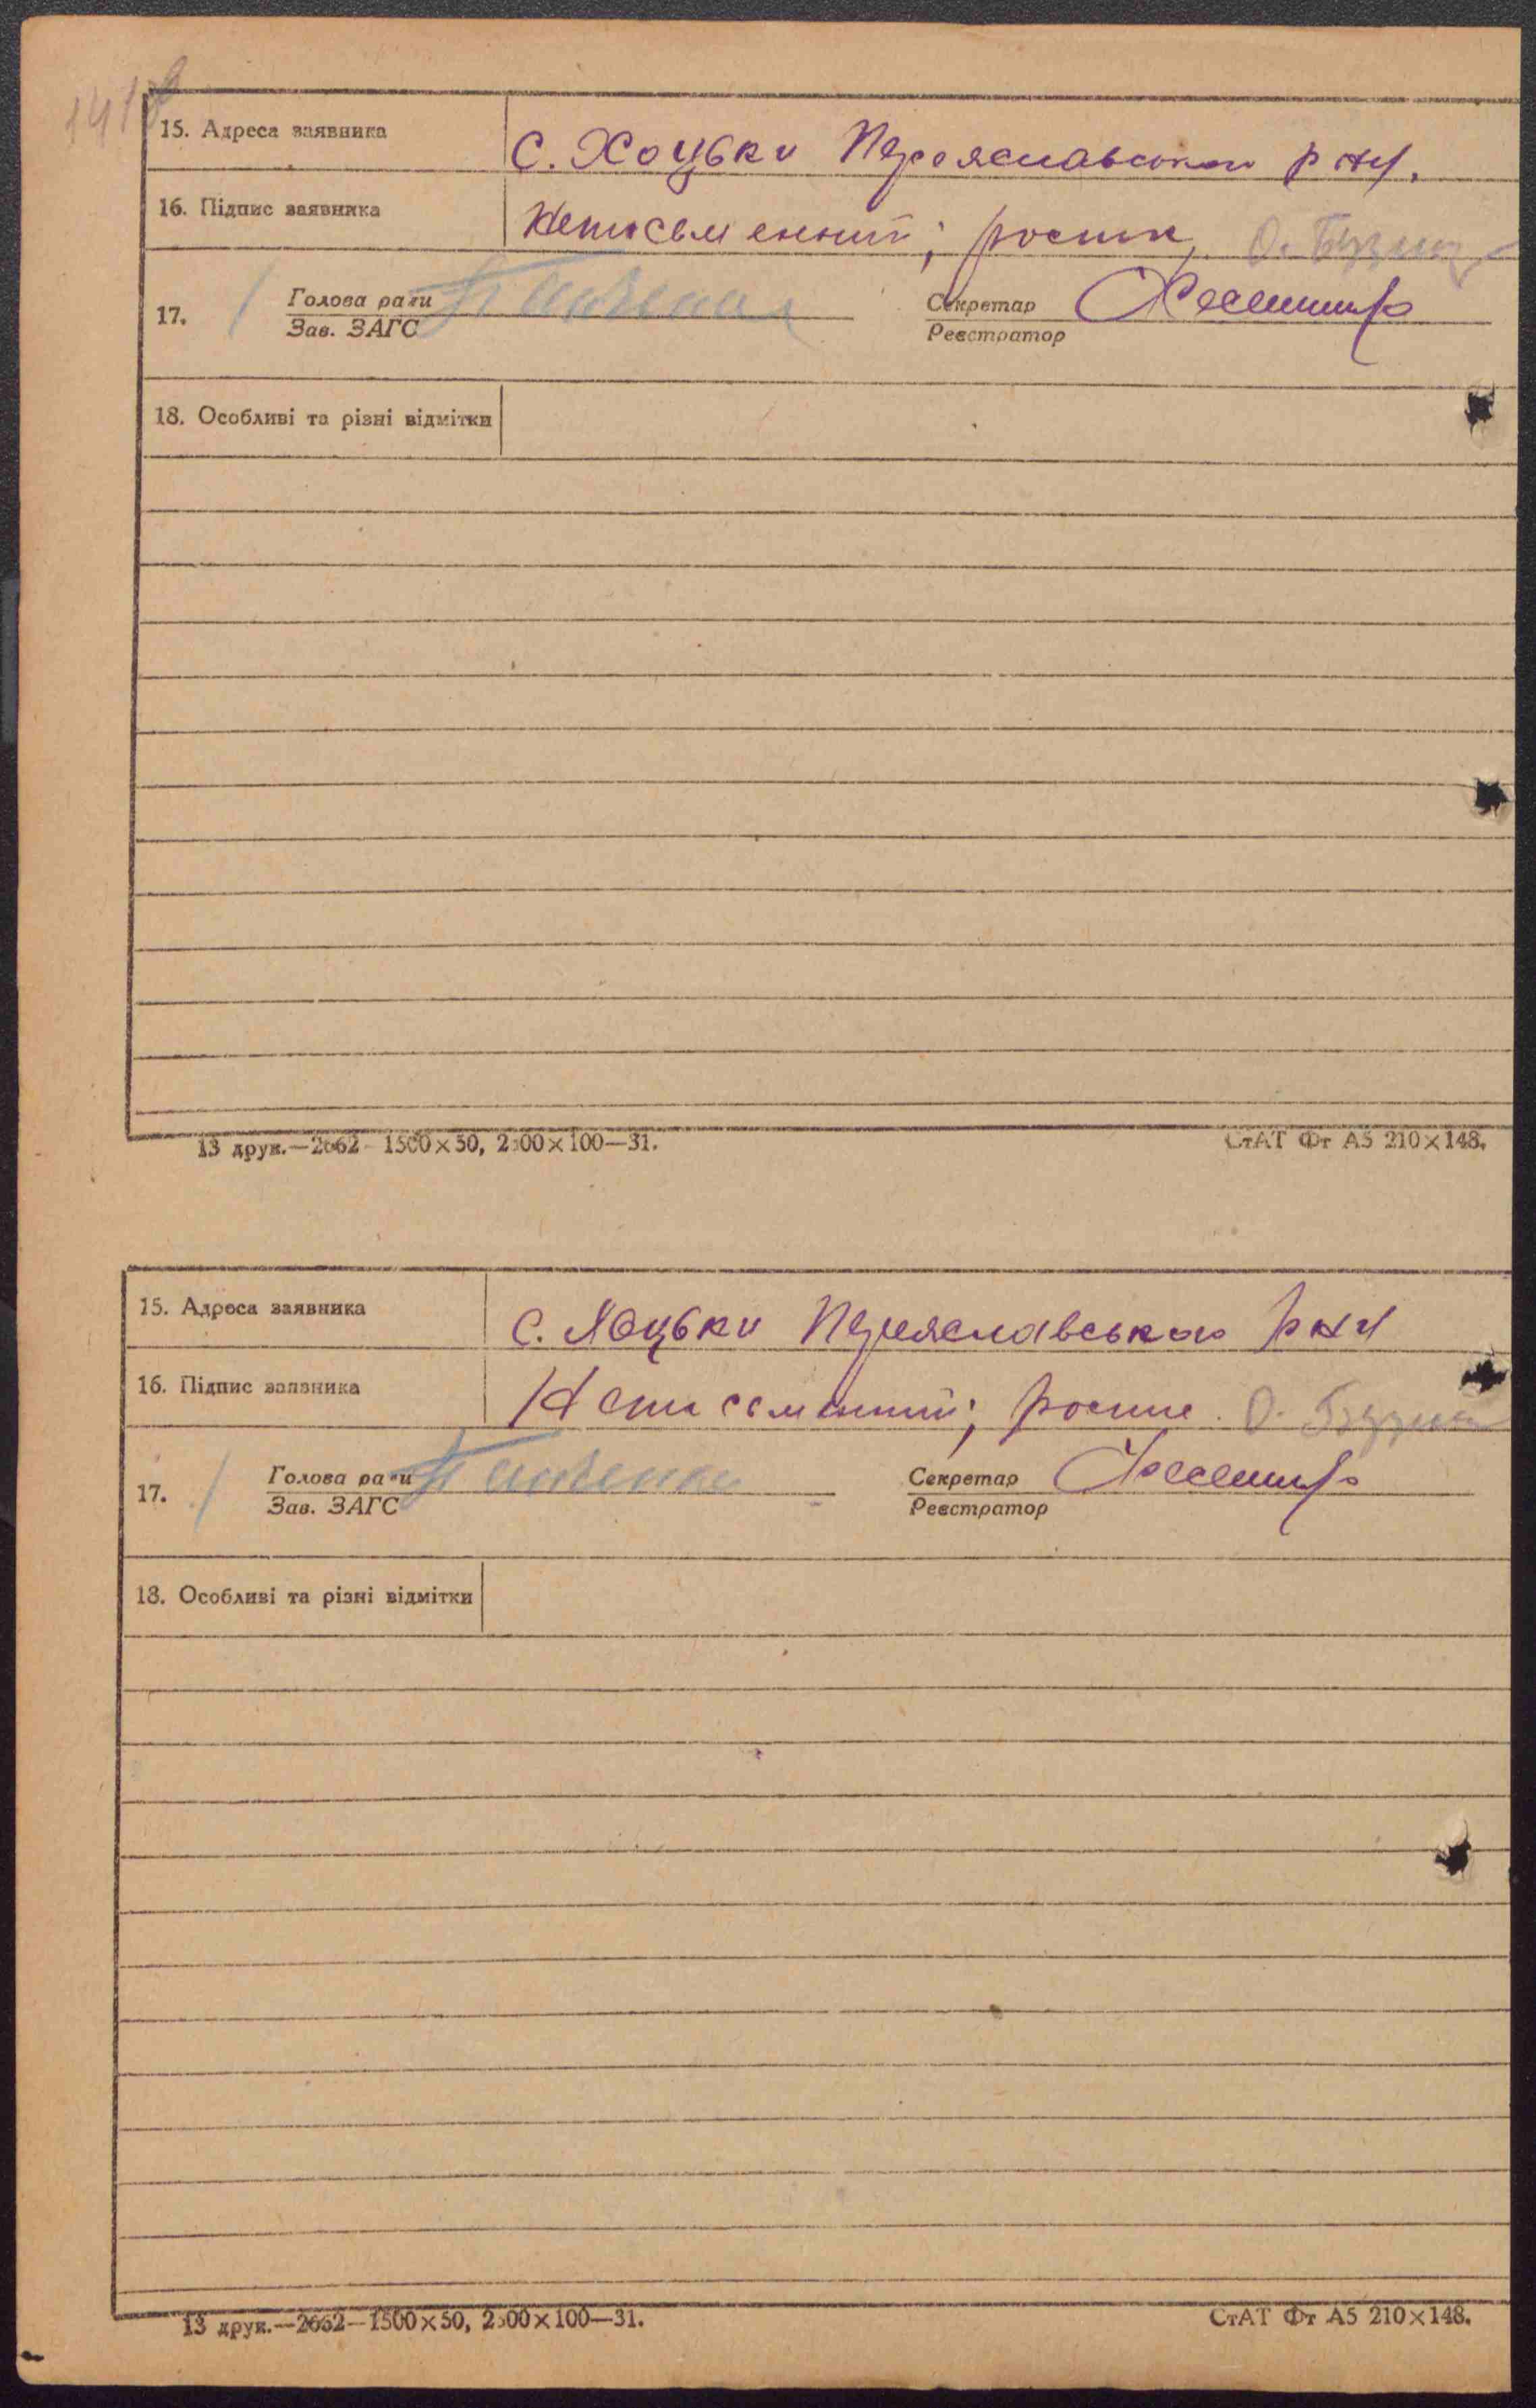 15. Адреса заявника С. Хоцьки Переяславського р ну.
16. Підпис заявника Неписьменний; росписк О. Бузин
17. Голова ради Секретар
Зав. ЗАГС Реєстратор
18. Особливі та різні відмітки
13 друк.—2662—1500×50, 2500×100—31. СтАТ Фт А5 210×148.
15. Адреса заявника С. Хоцьки Переяславського р ну
16. Підпис заявника Неписьменний; О. Бузин
17. Голова ради Секретар
Зав. ЗАГС Реєстратор
18. Особливі та різні відмітки
13 друк.—2662—1500×50, 2500×100—31. СтАТ Фт А5 210×148.